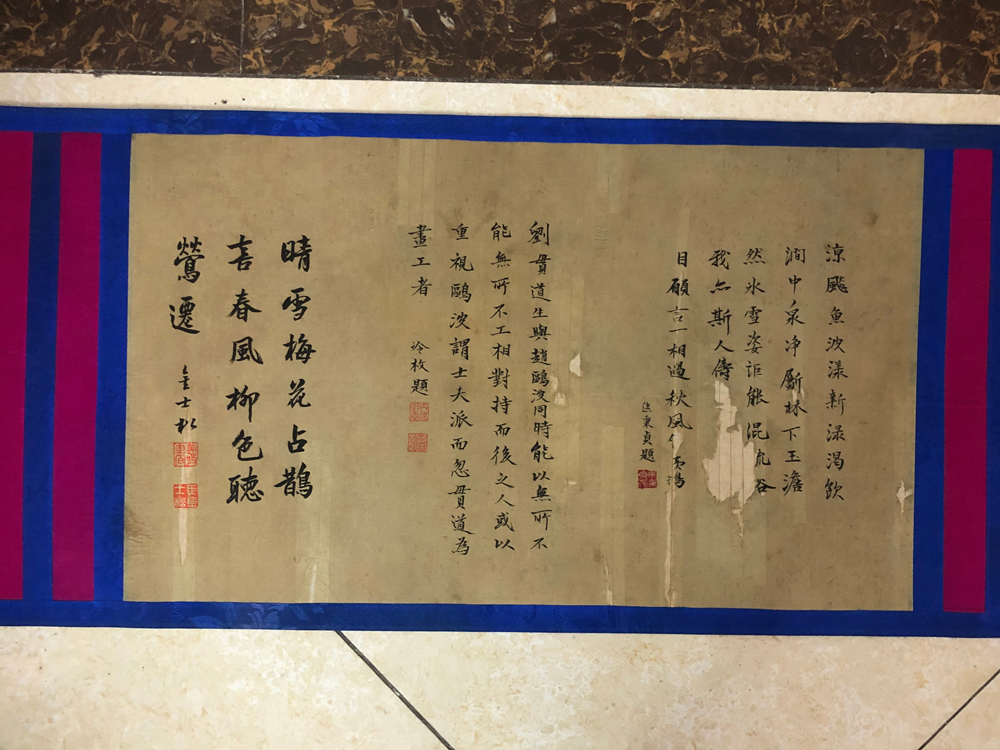 涼颸魚波漾新渌渴飲
澗中泉净斸林下玉澹
然氷雪姿詎能混流谷
我亦斯人儔
目願言一相過秋風鴻
焦秉貞題
劉貫道生與趙鷗波同時能以無所不
能無所不工相對持而後之人或以
重視鷗波謂士夫派而忽貫道為
畫工者
冷枚題
晴雪梅花占鵲
喜春風柳色聽
鶯遷
金士松